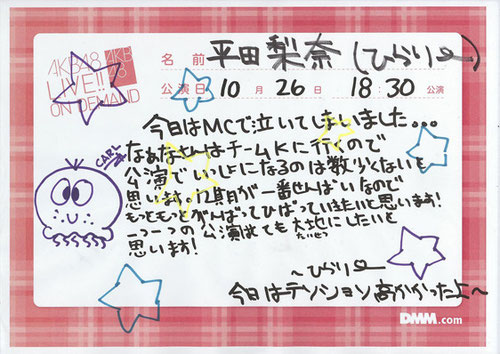 AKB48
LIVE!!
ON DEMAND
AKB
48
名前 平田梨奈(ひらりー)
公演日 10月26日 18:30公演
今日はMCで泣いてしまいました...
なぁなさんはチームKに行くので
公演でいっしょになるのは数少ないと
思います。12期が一番せんぱいなので
もっともっとがんばってひっぱっていきたいと思います!
一つ一つの公演はても大地にしたいと
たいせつ
思います!
〜ひらりー
今日はテンション高かかったよ〜
CARL
DMM.com